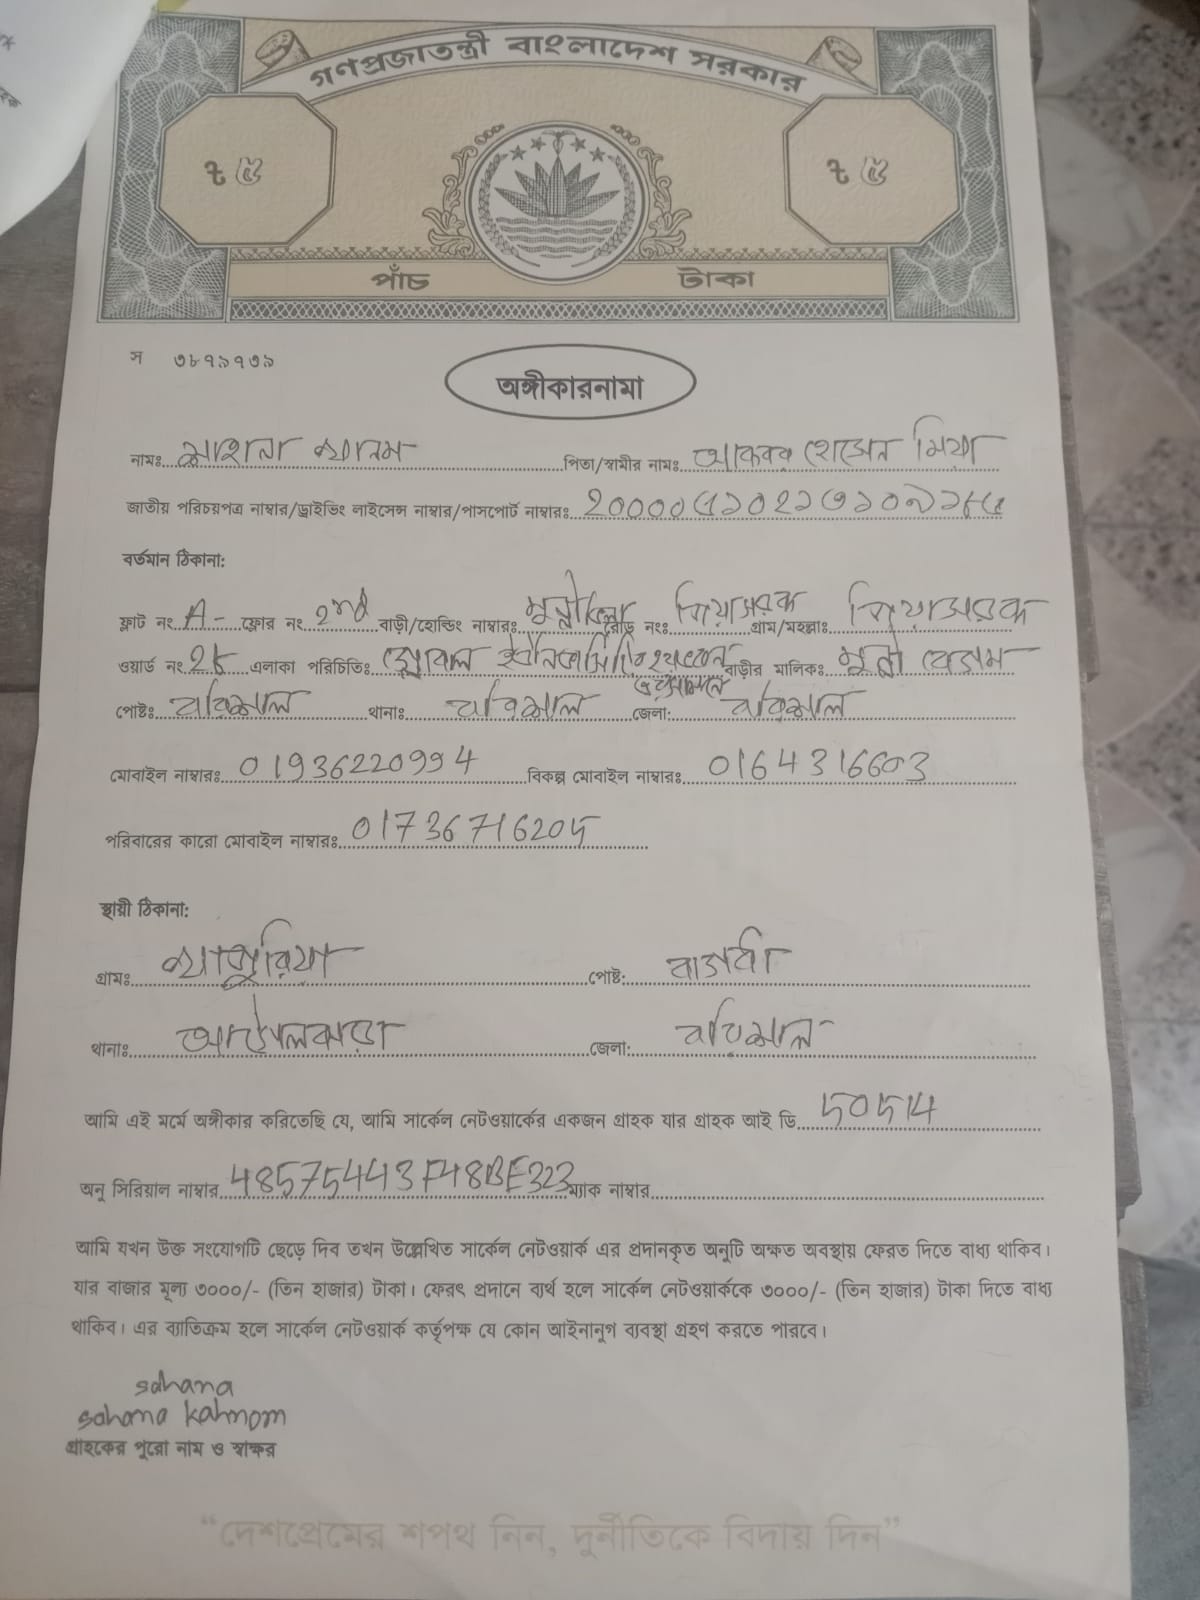 গণপ্রজাতন্ত্রী বাংলাদেশ সরকার
ট ৫ ট ৫
পাঁচ টাকা
স ৩৮৭৯৭৩৯
অঙ্গীকারনামা
নামঃ সাহানা খানম পিতা/স্বামীর নামঃ আকবর হোসেন মিয়া
জাতীয় পরিচয়পত্র নাম্বার/ড্রাইভিং লাইসেন্স নাম্বার/পাসপোর্ট নাম্বারঃ
বর্তমান ঠিকানা:
ফ্লাট নং A- ফ্লোর নং 2nd বাড়ী/হোল্ডিং নাম্বারঃ মুন্নী ভিলা রোড নংঃ গ্রাম/মহল্লাঃ
ওয়ার্ড নং এলাকা পরিচিতিঃ গ্লোবাল ইউনিভার্সিটি বাড়ীর মালিকঃ মুন্নী বেগম
পোষ্টঃ বরিশাল থানাঃ বরিশাল জেলা: বরিশাল
মোবাইল নাম্বারঃ 01936220994 বিকল্প মোবাইল নাম্বারঃ
পরিবারের কারো মোবাইল নাম্বারঃ 01736716205
স্থায়ী ঠিকানা:
গ্রামঃ পোষ্ট:
থানাঃ আগৈলঝাড়া জেলা: বরিশাল
আমি এই মর্মে অঙ্গীকার করিতেছি যে, আমি সার্কেল নেটওয়ার্কের একজন গ্রাহক যার গ্রাহক আই ডি 50514
অনু সিরিয়াল নাম্বার 48575443F48BE323 ম্যাক নাম্বার
আমি যখন উক্ত সংযোগটি ছেড়ে দিব তখন উল্লেখিত সার্কেল নেটওয়ার্ক এর প্রদানকৃত অনুটি অক্ষত অবস্থায় ফেরত দিতে বাধ্য থাকিব।
যার বাজার মূল্য ৩০০০/- (তিন হাজার) টাকা। ফেরৎ প্রদানে ব্যর্থ হলে সার্কেল নেটওয়ার্ককে ৩০০০/- (তিন হাজার) টাকা দিতে বাধ্য
থাকিব। এর ব্যাতিক্রম হলে সার্কেল নেটওয়ার্ক কর্তৃপক্ষ যে কোন আইনানুগ ব্যবস্থা গ্রহণ করতে পারবে।
sahana
sahana kahnom
গ্রাহকের পুরো নাম ও স্বাক্ষর
“দেশপ্রেমের শপথ নিন, দুর্নীতিকে বিদায় দিন”